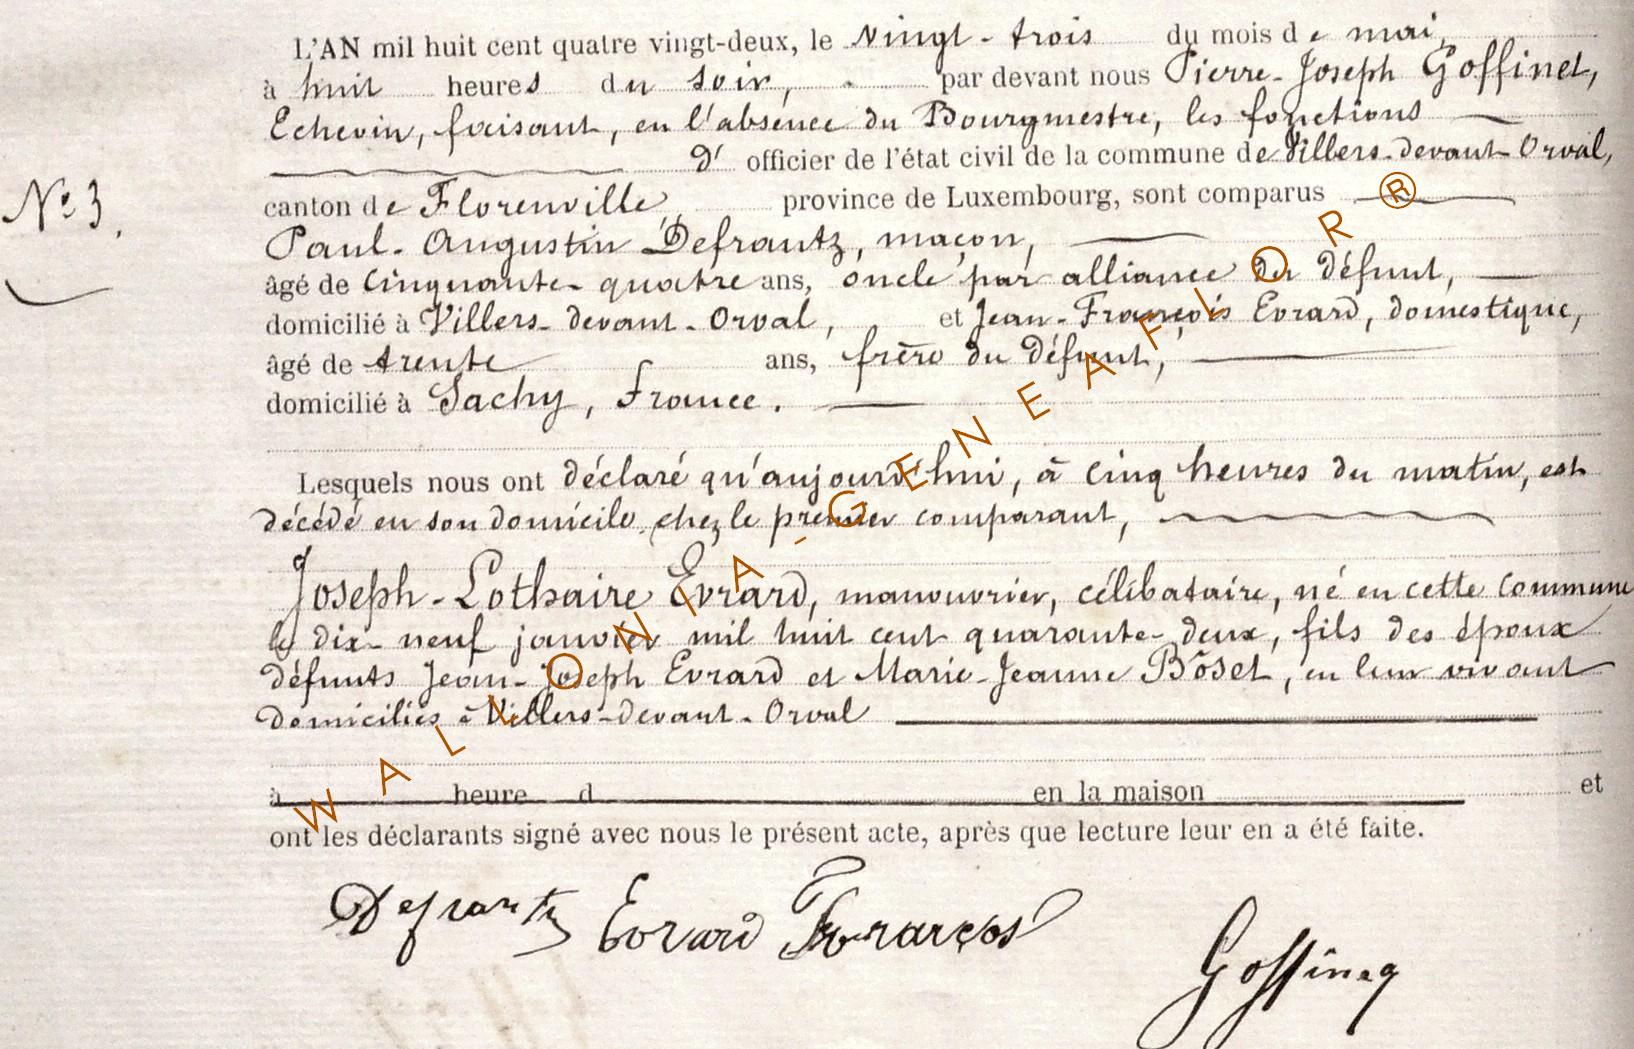 L'AN mil huit cent quatre vingt-deux, le vingt-trois du mois de mai,
à huit heures du soir, par devant nous Pierre-Joseph Goffinet,
Echevin, faisant, en l'absence du Bourgmestre, les fonctions
d' officier de l'état civil de la commune de Villers-devant-Orval,
N° 3.
canton de Florenville province de Luxembourg, sont comparus
Paul-Augustin Defrantz, maçon,
âgé de cinquante-quatre ans, oncle par alliance du défunt,
domicilié à Villers-devant-Orval, et Jean-François Evrard, domestique,
âgé de trente ans, frère du défunt,
domicilié à Sachy, France.
Lesquels nous ont déclaré qu'aujourd'hui, à cinq heures du matin, est
décédé en son domicile, chez le premier comparant,
Joseph-Lothaire Evrard, manouvrier, célibataire, né en cette commune
le dix-neuf janvier mil huit cent quarante-deux, fils des époux
défunts Jean-Joseph Evrard et Marie-Jeanne Bôset, en leur vivant
domiciliés à Villers-devant-Orval
à heure d en la maison et
ont les déclarants signé avec nous le présent acte, après que lecture leur en a été faite.
Defrantz Evrard
WALLONIA-GENEAFLOR®